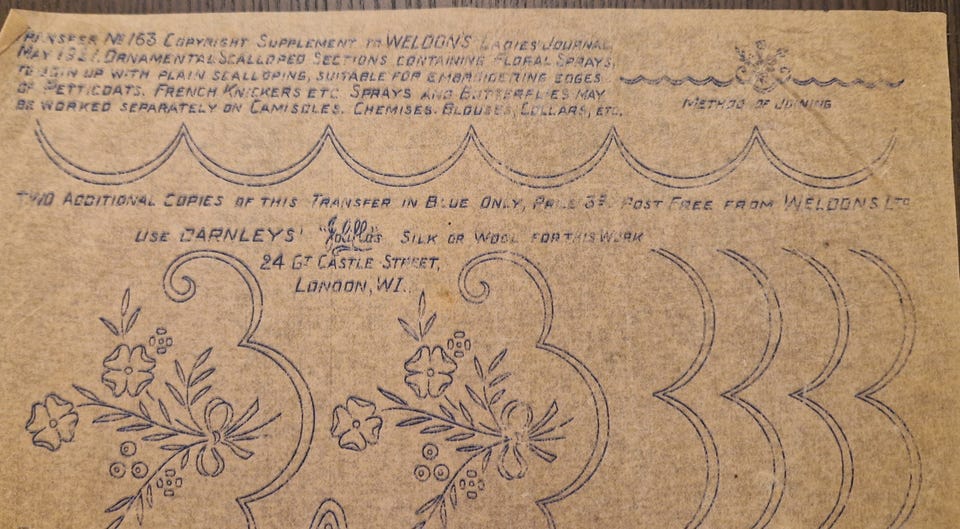 TRANSFER No 163 COPYRIGHT SUPPLEMENT TO WELDON'S LADIES' JOURNAL,
MAY 1921. ORNAMENTAL SCALLOPED SECTIONS CONTAINING FLORAL SPRAYS,
TO JOIN UP WITH PLAIN SCALLOPING, SUITABLE FOR EMBROIDERING EDGES
OF PETTICOATS, FRENCH KNICKERS ETC. SPRAYS AND BUTTERFLIES MAY
BE WORKED SEPARATELY ON CAMISOLES, CHEMISES, BLOUSES, COLLARS, ETC.
METHOD OF JOINING
TWO ADDITIONAL COPIES OF THIS TRANSFER IN BLUE ONLY, PRICE 3D. POST FREE FROM WELDONS LTD
USE DARNLEYS' SILK OR WOOL FOR THIS WORK
24 GT CASTLE STREET,
LONDON, W1.